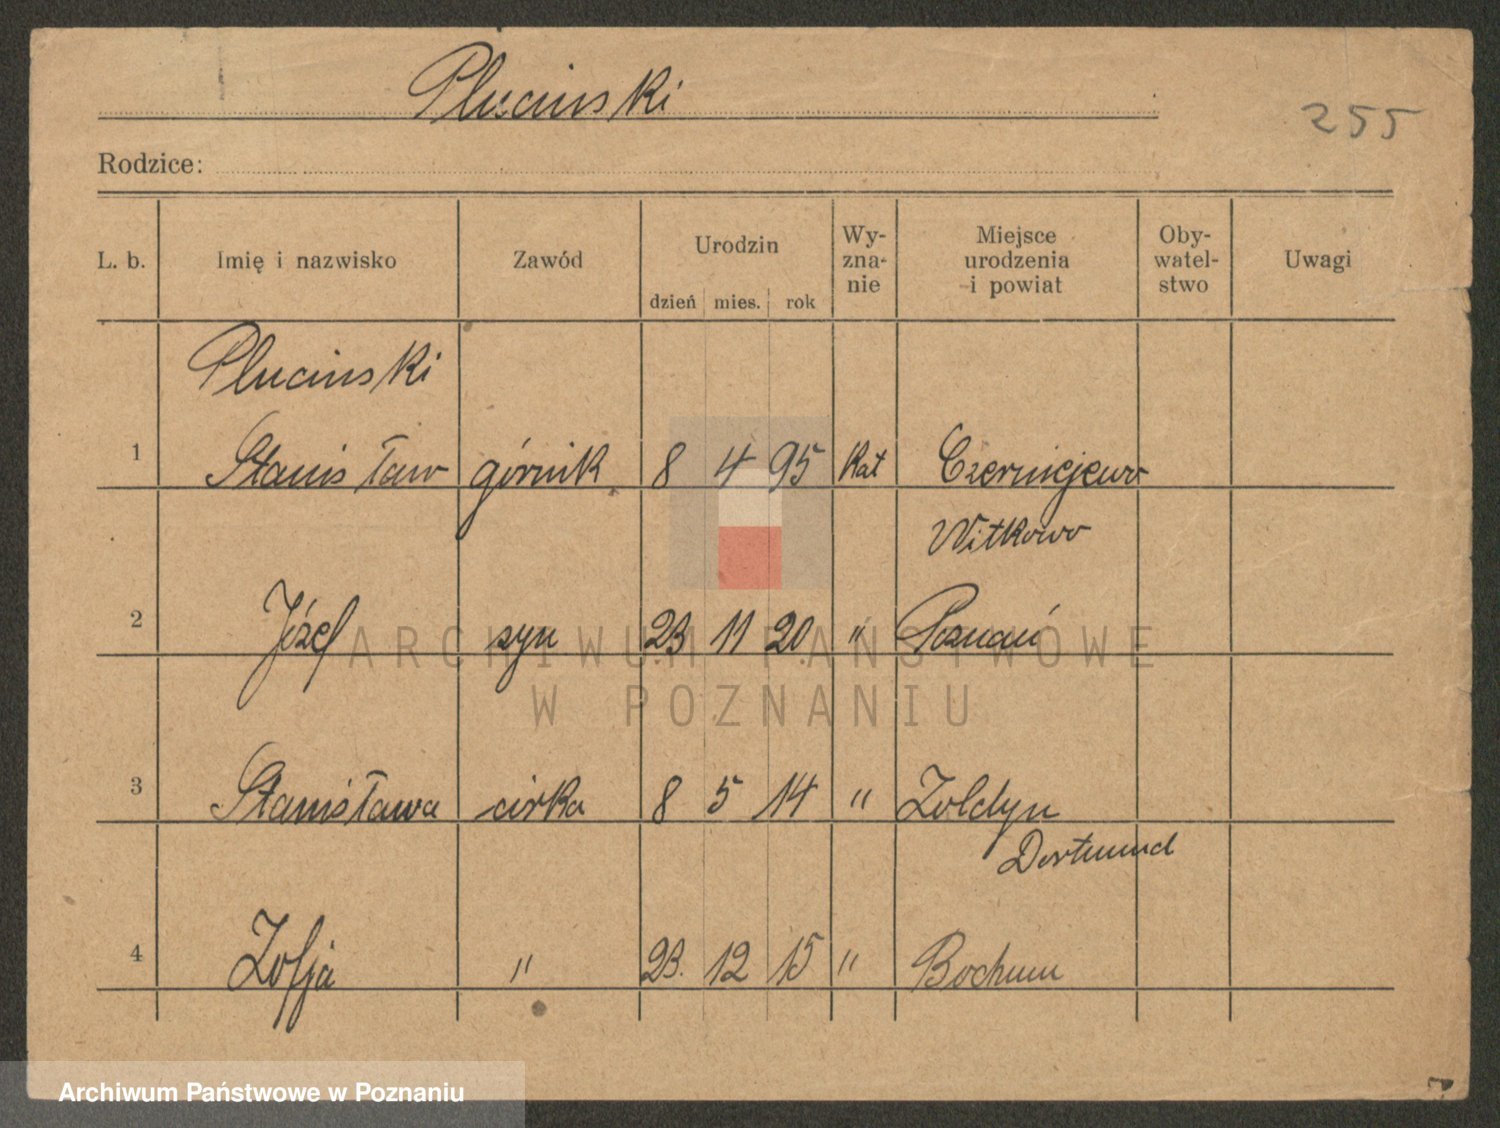 Plucinski
255
Rodzice:
L. b. Imię i nazwisko Zawód Urodzin dzień mies. rok Wy-zna-nie Miejsce urodzenia i powiat Oby-watel-stwo Uwagi
Plucinski
1 Stanisław górnik 8 4 95 Kat Czerniejewo
Witkowo
2 Józef syn 23 11 20 " Poznań
ARCHIWUM PAŃSTWOWE
W POZNANIU
3 Stanisława córka 8 5 14 " Zoldyn
Dortmund
4 Zofja " 23. 12 15 " Bochum
Archiwum Państwowe w Poznaniu